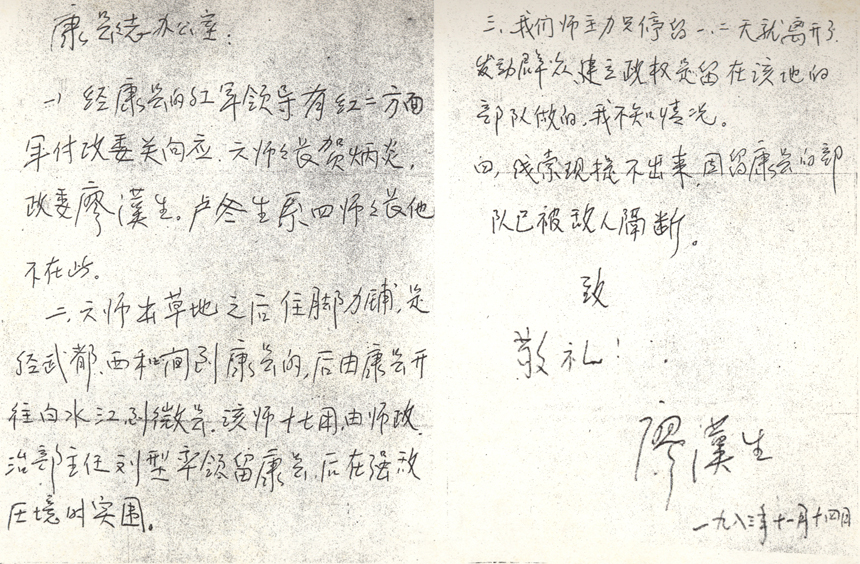 康县志办公室：
一、经康县的红军领导有红二方面
军付政委关向应、六师师长贺炳炎，
政委廖漢生。卢冬生系四师师长他
不在此。
二、六师出草地之后住脚力铺，是
经武都、西和间到康县的，后由康县开
往白水江到徽县。该师十七团，由师政
治部主任刘型率领留康县，后在强敌
压境时突围。
三、我们师主力只停留一、二天就离开了。
发动群众、建立政权是留在该地的
部队做的，我不知情况。
四、线索现提不出来，因留康县的部
队已被敌人隔断。
致
敬礼！
廖漢生
一九八三年十一月十四日